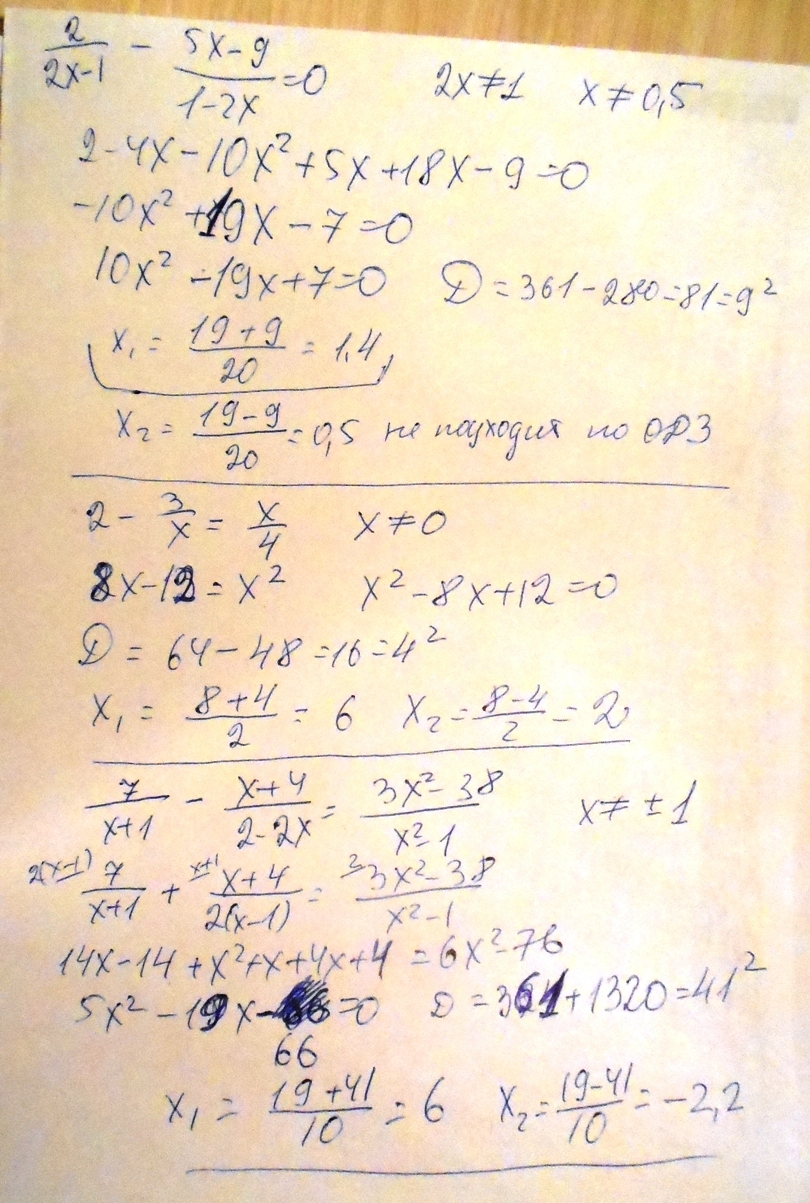 2/(2x-1) - (5x-9)/(1-2x) = 0   2x≠1   x≠0,5
2-4x-10x²+5x+18x-9=0
-10x²+19x-7=0
10x²-19x+7=0   D=361-280=81=9²
x₁ = (19+9)/20 = 1,4
x₂ = (19-9)/20 = 0,5 не подходит по ОДЗ
2 - 3/x = x/4   x≠0
8x-12=x²   x²-8x+12=0
D = 64-48=16=4²
x₁ = (8+4)/2 = 6   x₂ = (8-4)/2 = 2
7/(x+1) - (x+4)/(2-2x) = (3x²-38)/(x²-1)   x≠±1
2(x-1) 7/(x+1) + x+1 (x+4)/(2(x-1)) = 2 (3x²-38)/(x²-1)
14x-14+x²+x+4x+4=6x²-76
5x²-19x-66=0   D=361+1320=41²
x₁ = (19+41)/10 = 6   x₂ = (19-41)/10 = -2,2